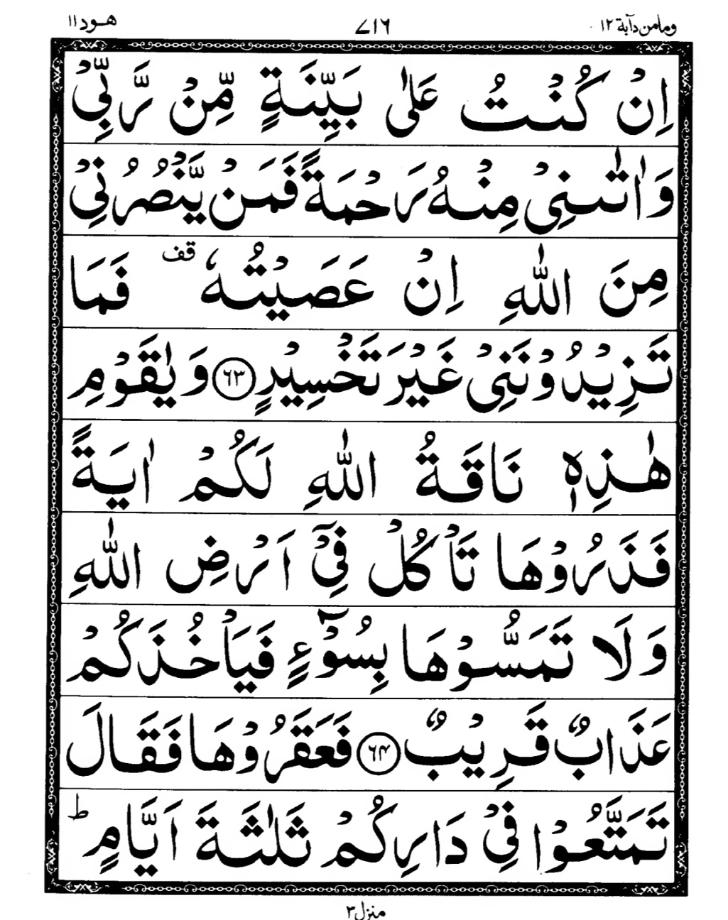 وما من دآبة ١٢ ٧١٦ هود ١١
اِنْ كُنْتُ عَلٰى بَيِّنَةٍ مِّنْ رَّبِّىْ
وَاٰتٰىنِىْ مِنْهُ رَحْمَةً فَمَنْ يَّنْصُرُنِىْ
مِنَ اللّٰهِ اِنْ عَصَيْتُهٗ قف فَمَا
تَزِيْدُوْنَنِىْ غَيْرَ تَخْسِيْرٍ ﴿٦٣﴾ وَيٰقَوْمِ
هٰذِهٖ نَاقَةُ اللّٰهِ لَكُمْ اٰيَةً
فَذَرُوْهَا تَاْكُلْ فِىْٓ اَرْضِ اللّٰهِ
وَلَا تَمَسُّوْهَا بِسُوْٓءٍ فَيَاْخُذَكُمْ
عَذَابٌ قَرِيْبٌ ﴿٦٤﴾ فَعَقَرُوْهَا فَقَالَ
تَمَتَّعُوْا فِىْ دَارِكُمْ ثَلٰثَةَ اَيَّامٍ ؕ
منزل ٣